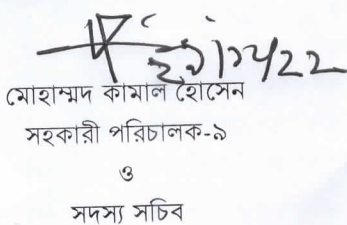 মোহাম্মদ কামাল হোসেন
সহকারী পরিচালক-৯
ও
সদস্য সচিব